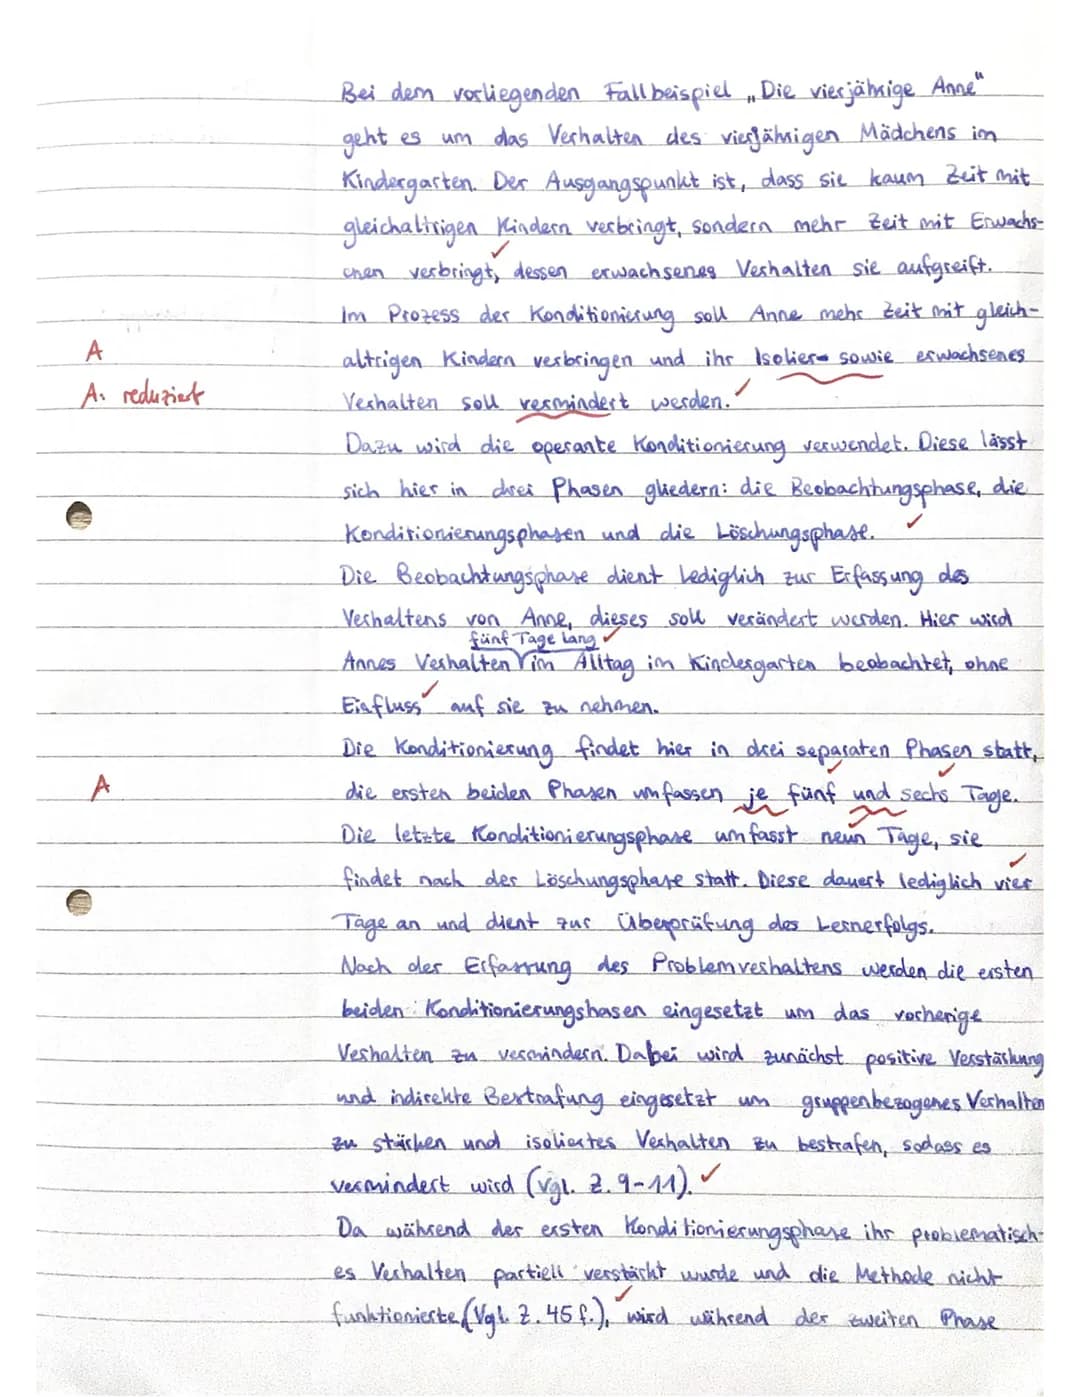 Bei dem vorliegenden Fallbeispiel „Die vierjährige Anne"
geht es um das Verhalten des vierjährigen Mädchens im
Kindergarten. Der Ausgangspunkt ist, dass sie kaum Zeit mit
gleichaltrigen Kindern verbringt, sondern mehr Zeit mit Erwachs-
enen verbringt, dessen erwachsenes Verhalten sie aufgreift.
Im Prozess der Konditionierung soll Anne mehr Zeit mit gleich-
A
altrigen Kindern verbringen und ihr Isolier- sowie erwachsenes
A: reduziert
Verhalten soll vermindert werden.
Dazu wird die operante Konditionierung verwendet. Diese lässt
sich hier in drei Phasen gliedern: die Beobachtungsphase, die
Konditionierungsphasen und die Löschungsphase.
Die Beobachtungsphase dient lediglich zur Erfassung des
Verhaltens von Anne, dieses soll verändert werden. Hier wird
fünf Tage lang
Annes Verhalten im Alltag im Kindergarten beobachtet, ohne
Einfluss auf sie zu nehmen.
Die Konditionierung findet hier in drei separaten Phasen statt,
A
die ersten beiden Phasen umfassen je fünf und sechs Tage.
Die letzte Konditionierungsphase umfasst neun Tage, sie
findet nach der Löschungsphase statt. Diese dauert lediglich vier
Tage an und dient zur Überprüfung des Lernerfolgs.
Nach der Erfassung des Problemverhaltens werden die ersten
beiden Konditionierungshasen eingesetzt um das vorherige
Verhalten zu vermindern. Dabei wird zunächst positive Verstärkung
und indirekte Bestrafung eingesetzt um gruppenbezogenes Verhalten
zu stärken und isoliertes Verhalten zu bestrafen, sodass es
vermindert wird (vgl. Z. 9-11).
Da während der ersten Konditionierungsphase ihr problematisch-
es Verhalten partiell verstärkt wurde und die Methode nicht
funktionierte (Vgl. Z. 45 f.), wird während der zweiten Phase